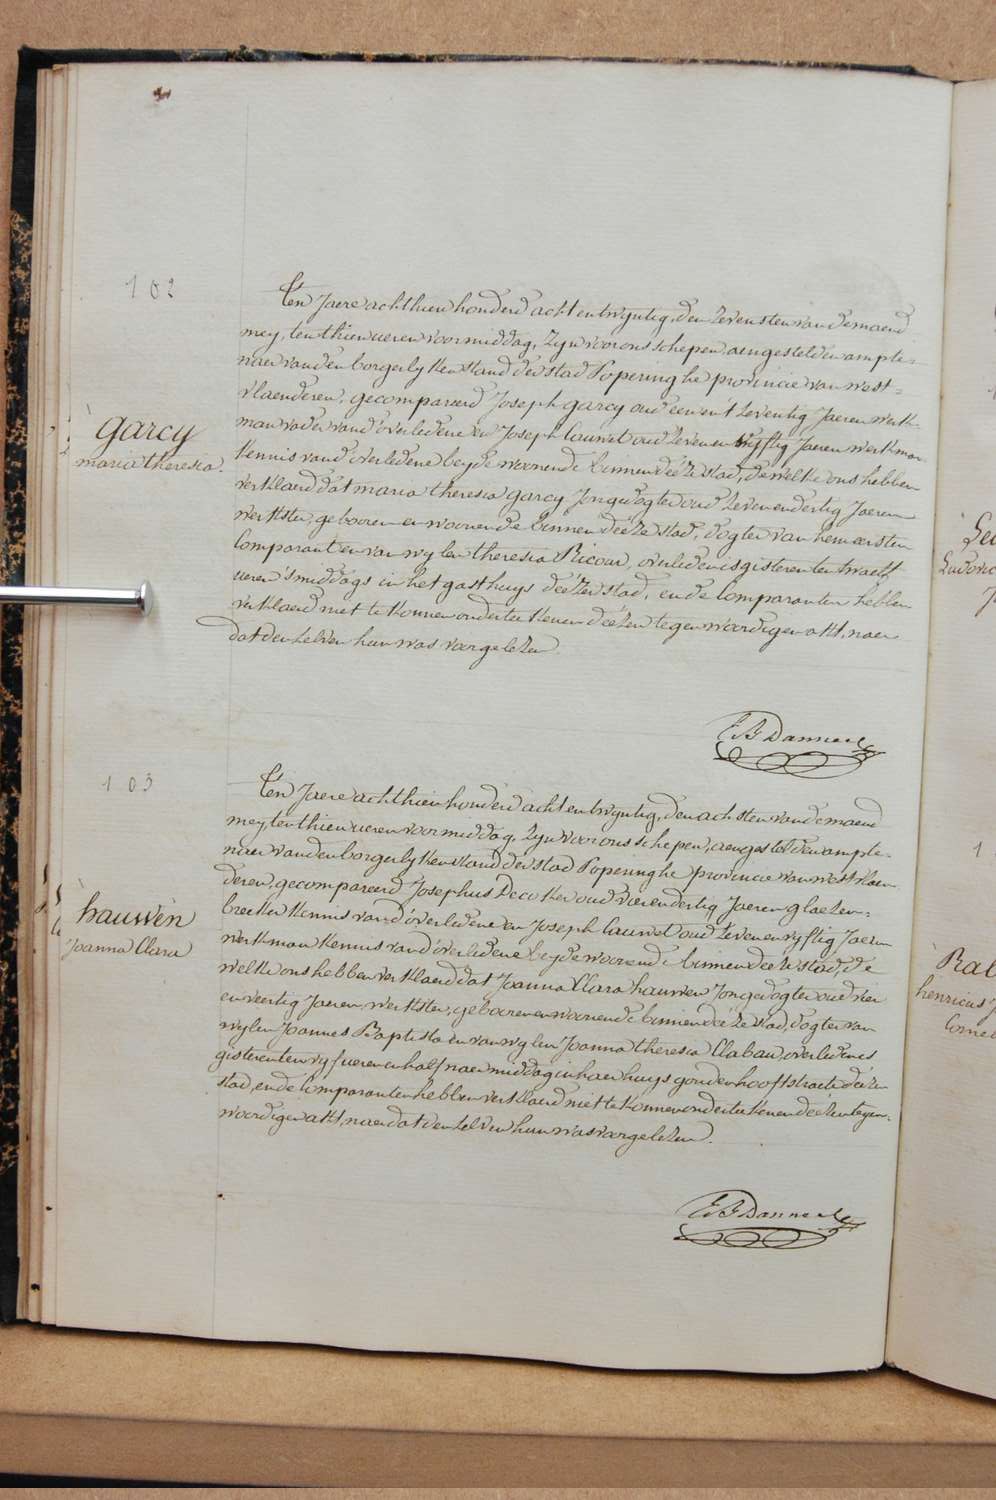 102
garcy
maria theresia
Ten Jaere achthien honderd acht en twyntig, den zevensten van de maend
mey, ten thien ueren voormiddag, Zyn voor ons schepen, aengestelden ampte-
naer van den borgerlyken stand der stad Poperinghe provincie van west-
vlaenderen, gecompareerd Joseph garcy oud een en t'zeventig Jaeren werk-
man vader van d'overledene en Joseph Cauwet oud zeven en vyftig Jaeren werkman
kennis van d'overledene beyde woonende binnen deéze stad, de welke ons hebben
verklaerd dat maria theresia garcy Jongedogter oud zeven en dertig Jaeren
werkster, gebooren en woonende binnen deéze stad, dogter van hem eersten
Comparant en van wylen theresia Ricour, overleden is gisteren ten twaelf
ueren 's middags in het gasthuys deézer stad, en de Comparanten hebben
verklaerd niet te konnen onderteekenen deézen tegenwoordigen akt, naer
dat den zelven hun was voorgelezen.
103
hauwen
Joanna Clara
Ten Jaere achthien honderd acht en twyntig, den achsten van de maend
mey, ten thien ueren voormiddag, Zyn voor ons schepen, aengestelden ampte-
naer van den borgerlyken stand der stad Poperinghe provincie van westvlaen-
deren, gecompareerd Josephus Decoker oud vierendertig Jaeren glaezen-
breeker kennis van d'overledene en Joseph Cauwet oud zeven en vyftig Jaeren
werkman kennis van d'overledene beyde woonende binnen deéze stad, de
welke ons hebben verklaerd dat Joanna Clara hauwen Jongedogter oud vier
en veertig Jaeren, werkster, gebooren en woonende binnen deéze stad, dogter van
wylen Joannes Baptista en van wylen Joanna theresia Clabau, overleden is
gisteren ten vyf ueren en half naermiddag in haer huys gouden hooftstraete deézer
stad, en de Comparanten hebben verklaerd niet te konnen onderteekenen deézen tegen-
woordigen akt, naer dat den zelven hun was voorgelezen.